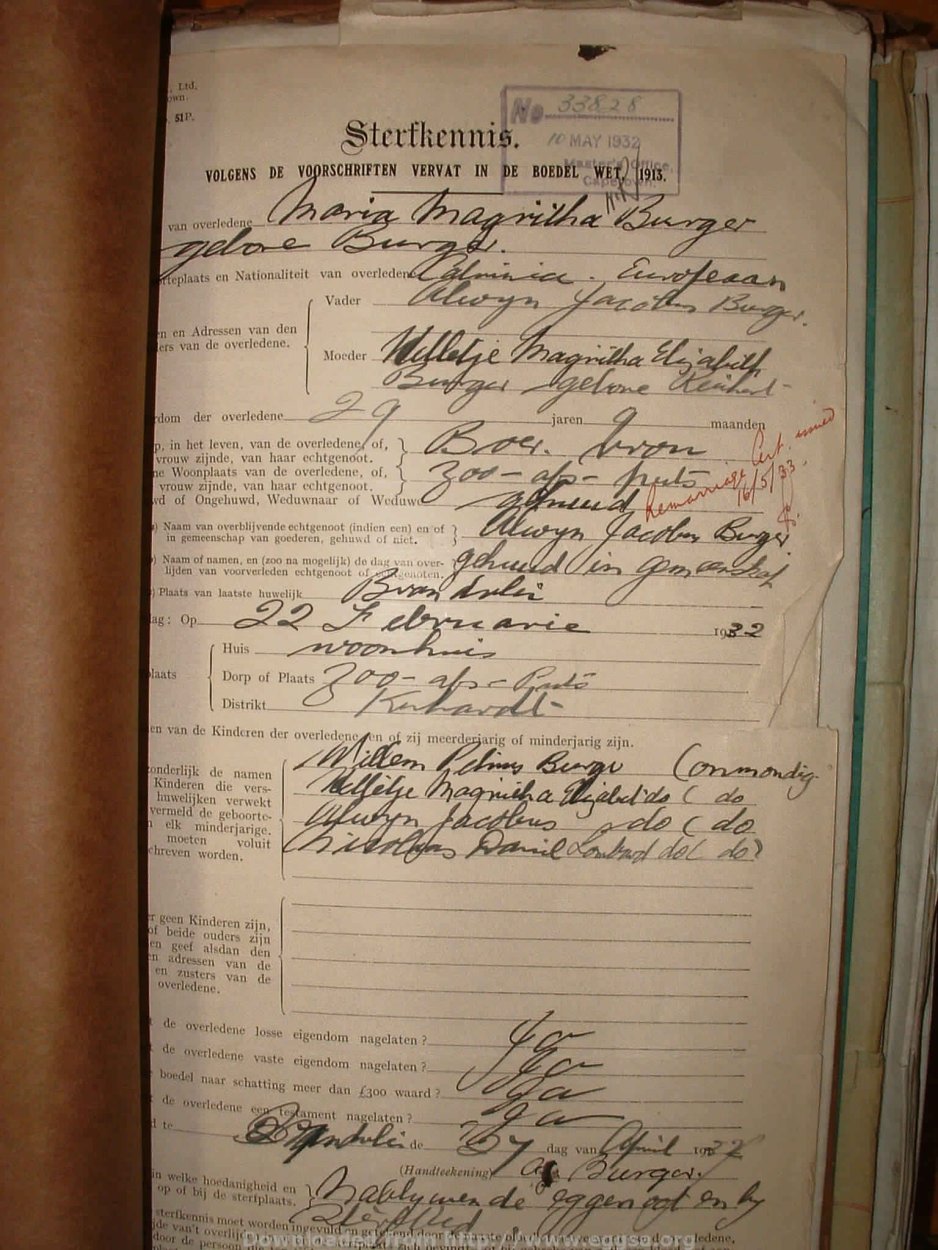 , Ltd.
own.
51P.
No 33828
10 MAY 1932
Master's Office,
Capetown.
Sterfkennis.
VOLGENS DE VOORSCHRIFTEN VERVAT IN DE BOEDEL WET, 1913.
van overledene Maria Magritha Burger
gebore Burger.
rteplaats en Nationaliteit van overledene Calvinia. Europeaan
Vader Alwyn Jacobus Burger.
en en Adressen van den
ers van de overledene.
Moeder Willetje Magritha Elizabeth
Burger gebore
rdom der overledene 29 jaren 9 maanden
p, in het leven, van de overledene, of,
vrouw zijnde, van haar echtgenoot. Boer. vrou
ne Woonplaats van de overledene, of,
vrouw zijnde, van haar echtgenoot. Zoo-afs-Puts
wd of Ongehuwd, Weduwnaar of Weduwe gehuud
Remarriage Cert. issued
16/5/33.
) Naam van overblijvende echtgenoot (indien een) en of
in gemeenschap van goederen, gehuwd of niet. Alwyn Jacobus Burger
) Naam of namen, en (zoo na mogelijk) de dag van over-
lijden van voorverleden echtgenoot of echtgenoten. gehuud in gemeenskap
) Plaats van laatste huwelijk Brandvlei
ag: Op 22 Februarie 1932
Huis woonhuis
laats
Dorp of Plaats Zoo-afs-Puts
Distrikt Kenhardt
en van de Kinderen der overledene, en of zij meerderjarig of minderjarig zijn.
onderlijk de namen
Kinderen die vers-
huwelijken verwekt
vermeld de geboorte-
n elk minderjarige.
moeten voluit
chreven worden.
Willem Petrus Burger (onmondig
Willetje Magritha Elizabet do ( do
Alwyn Jacobus do ( do
Nicolaas Daniel Lombard do ( do)
er geen Kinderen zijn,
of beide ouders zijn
en geef alsdan den
en adressen van de
en zusters van de
overledene.
t de overledene losse eigendom nagelaten? Ja
t de overledene vaste eigendom nagelaten? Ja
boedel naar schatting meer dan £300 waard? Ja
t de overledene een testament nagelaten? Ja
d te Brandvlei de dag van April 1932
(Handteekening) A J Burger.
in welke hoedanigheid en
op of bij de sterfplaats. Nablywende eggenoot en by
sterfbed
sterfkennis moet worden ingevuld en
Downloaded from http://www.eggsa.org